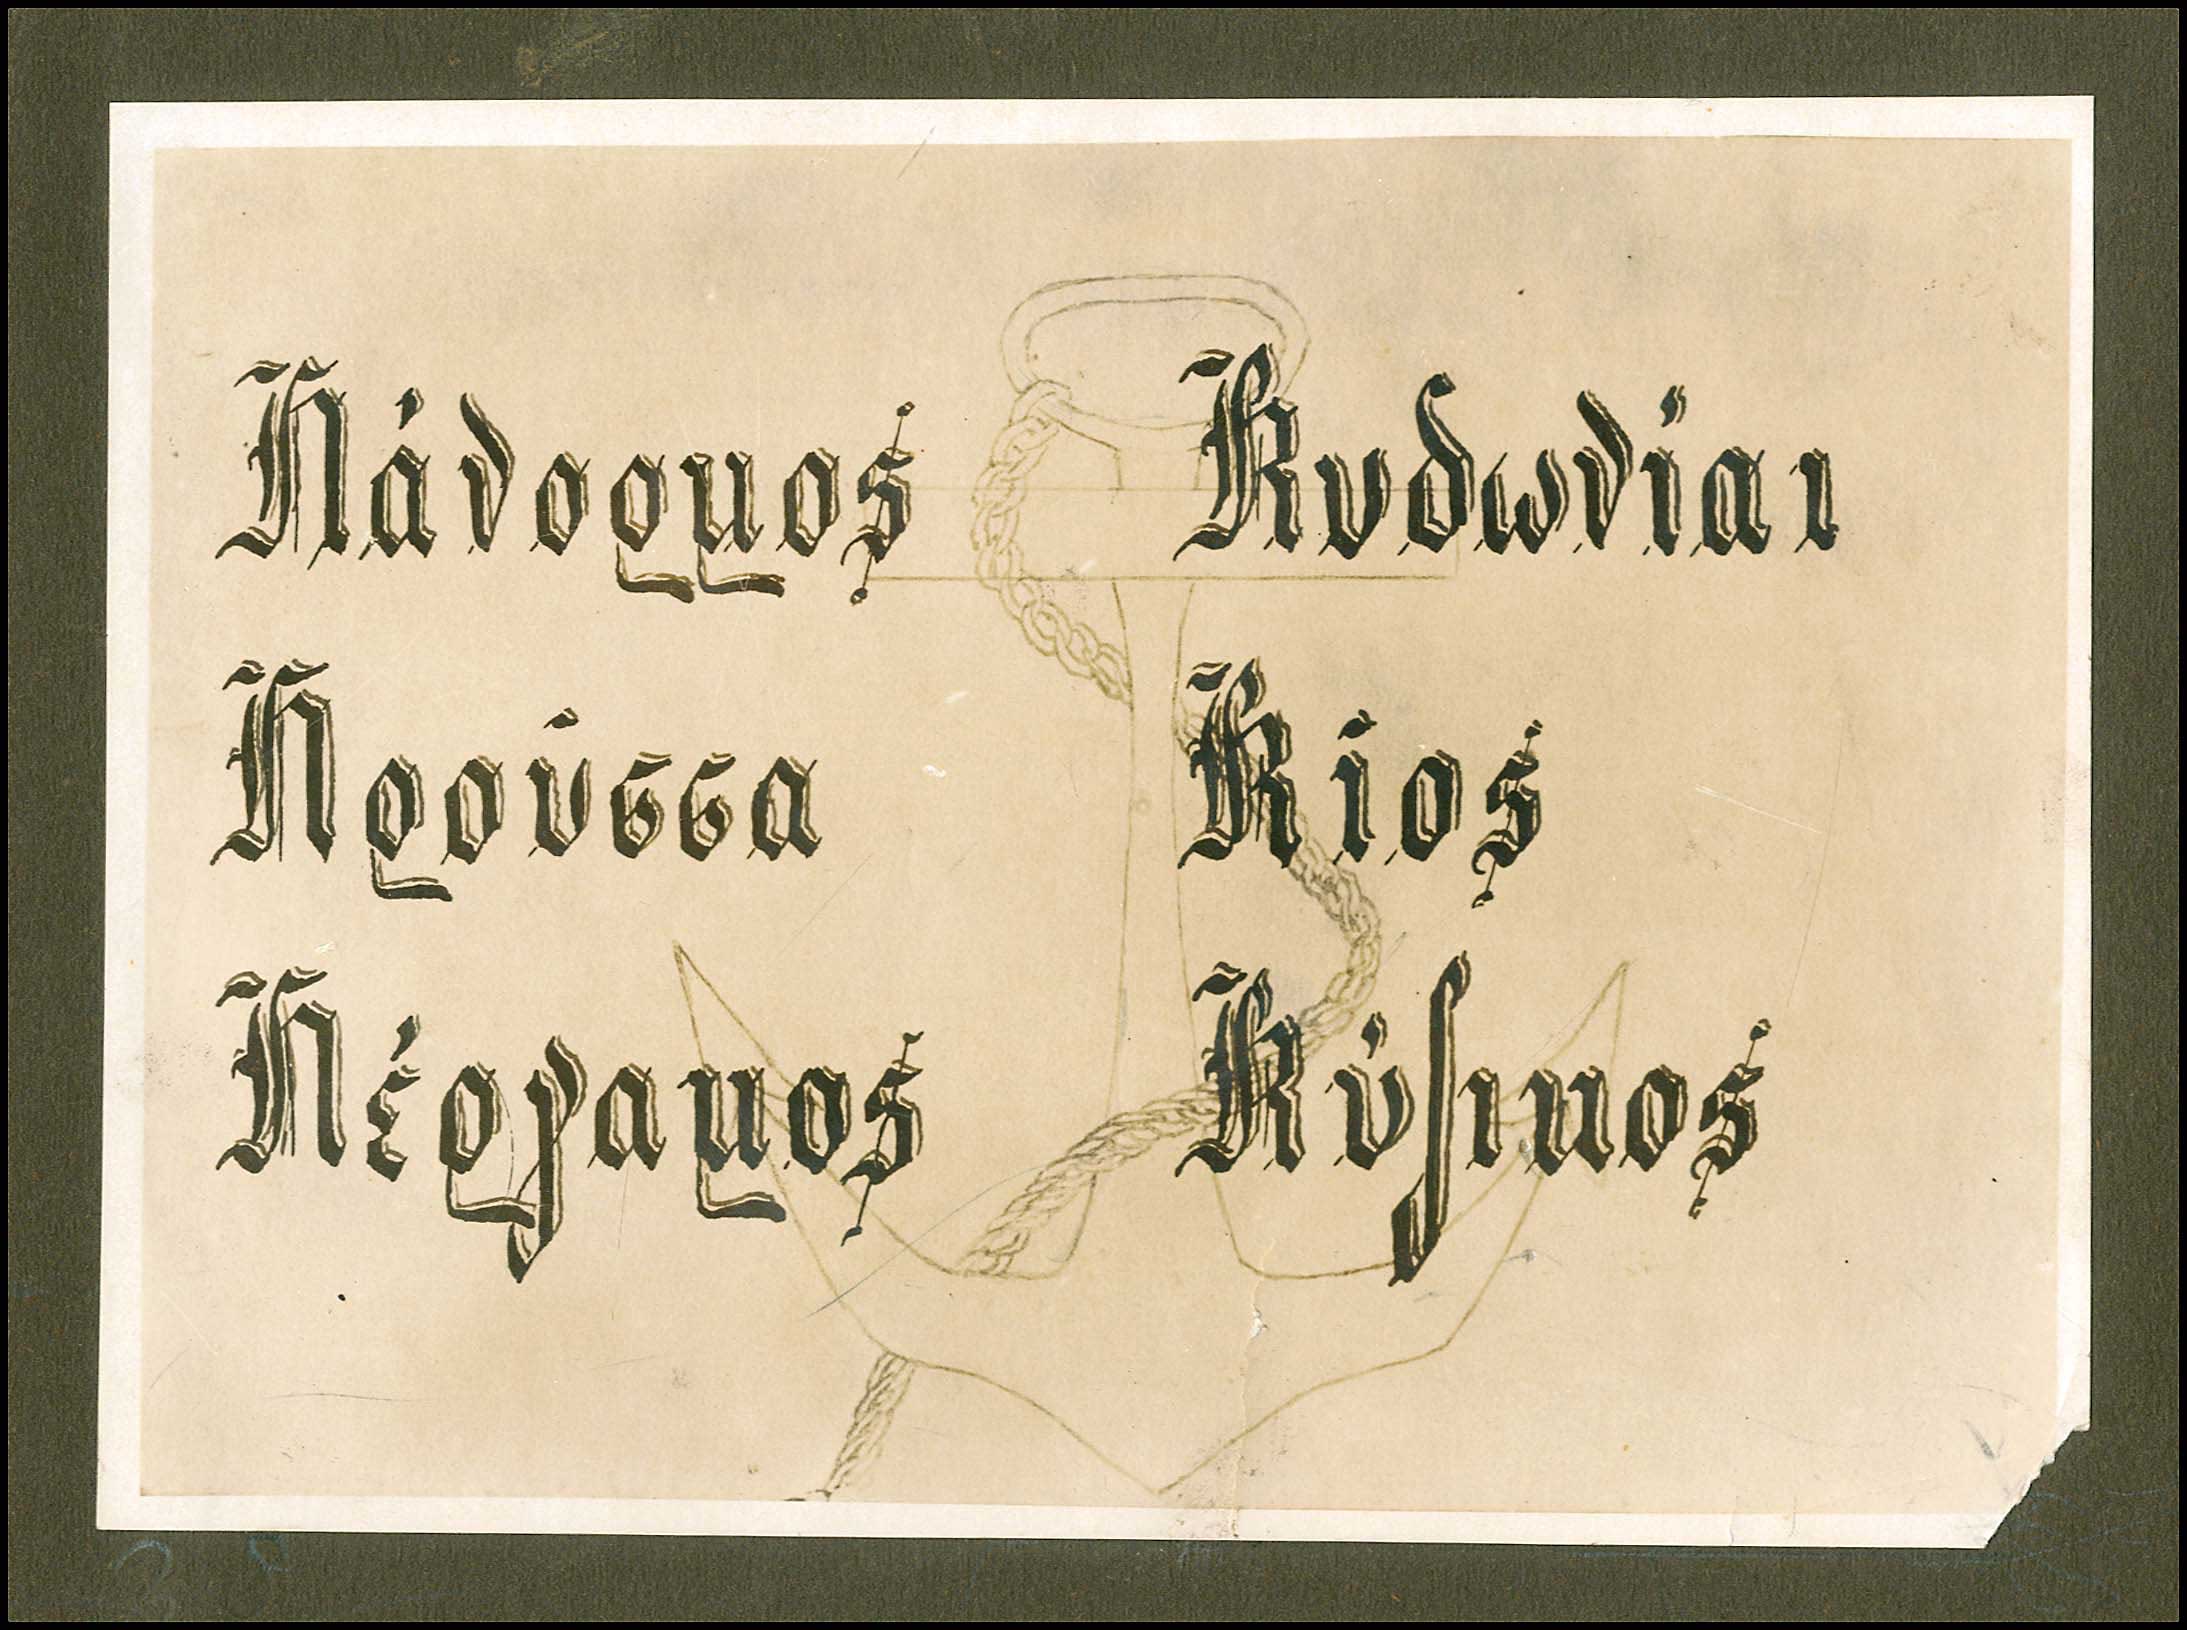 Πάνορμος Κυδωνίαι
Προύσσα Κίος
Πέργαμος Κύζικος